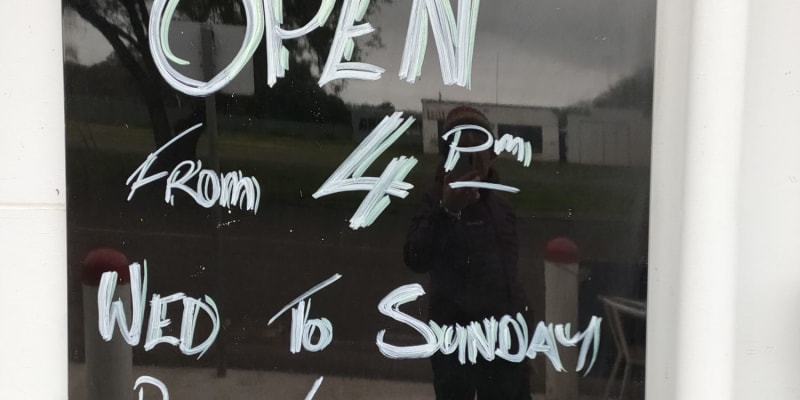 OPEN
FROM 4 Pm
WED TO SUNDAY